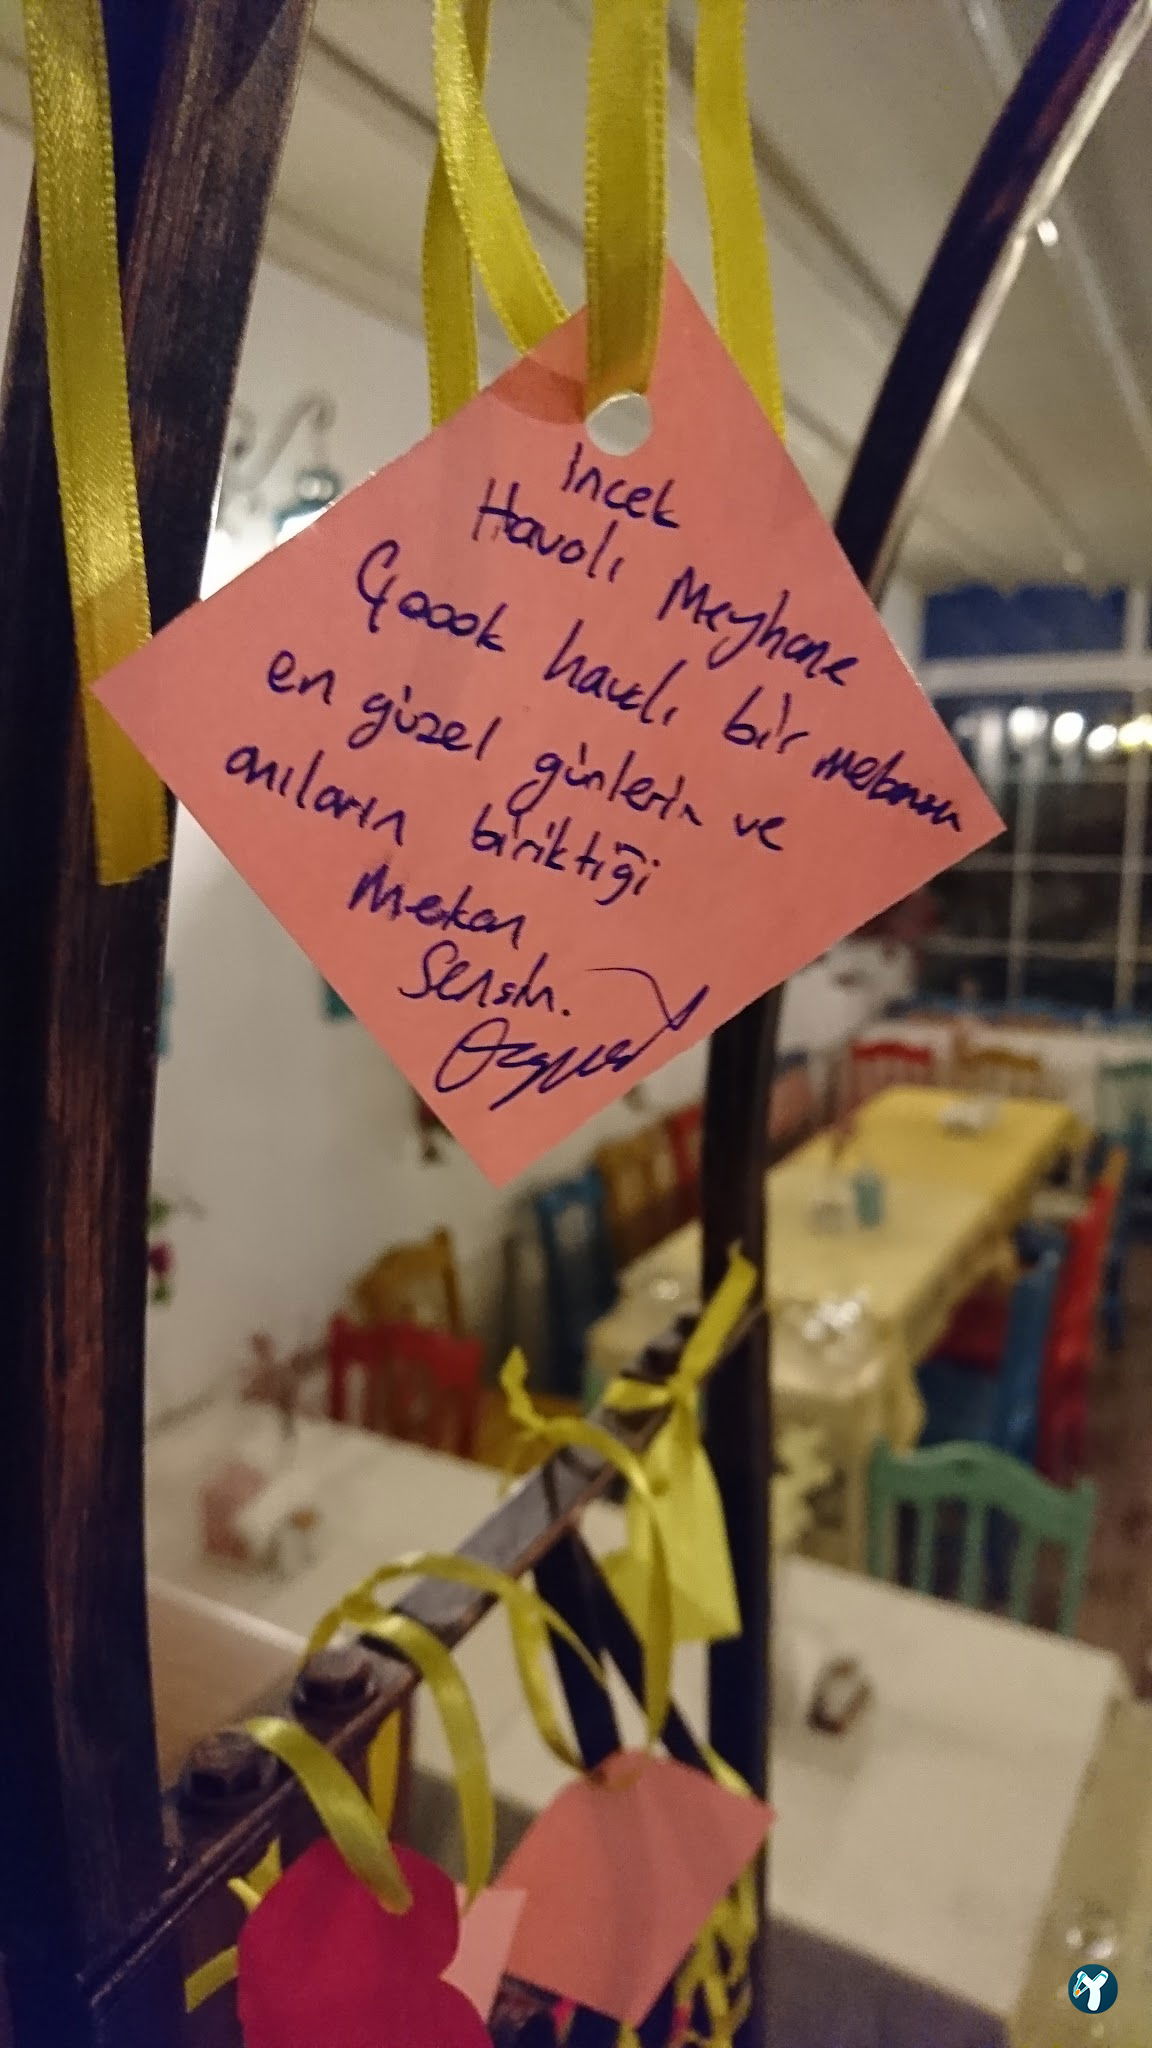 incek
Havalı Meyhane
Çoook havalı bir mekansın
en güzel günlerin ve
anıların biriktiği
Mekan
Sensin.